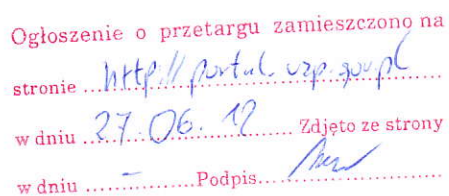 Ogłoszenie o przetargu zamieszczono na
stronie ... http://portal.uzp.gov.pl
w dniu 27.06.12 ........ Zdjęto ze strony
w dniu ....-............Podpis..........................